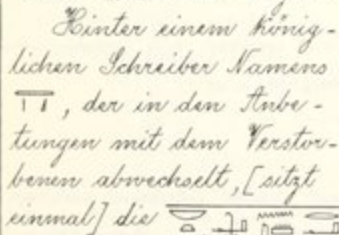 Hinter einem König-
lichen Schreiber Namens
, der in den Anbe-
tungen mit dem Verstor-
benen abwechselt, [sitzt
einmal] die